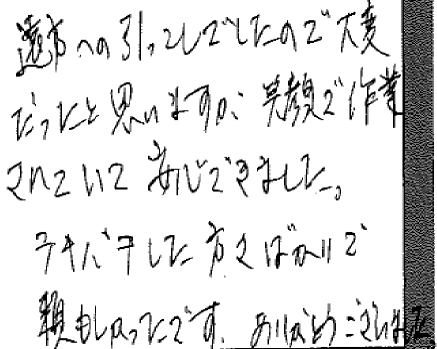 遠方への引っこしでしたので大変
だったと思いますが、笑顔で作業
されていて安心できました。
テキパキした方々ばかりで
頼もしかったです。ありがとうございました